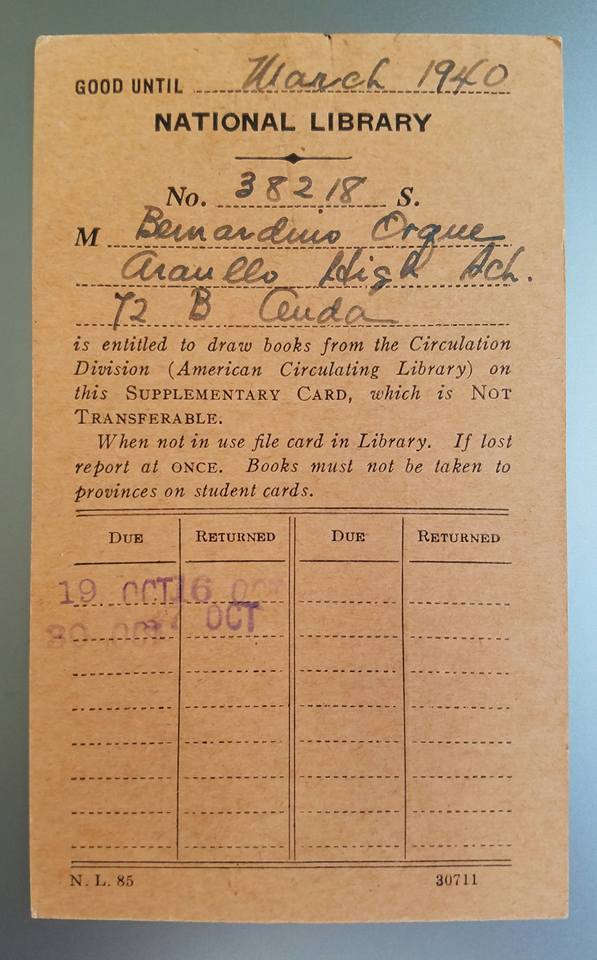 GOOD UNTIL March 1940
NATIONAL LIBRARY
No. 38218 S.
M Bernardino Orque
Araullo High Sch.
72 B
is entitled to draw books from the Circulation
Division (American Circulating Library) on
this SUPPLEMENTARY CARD, which is NOT
TRANSFERABLE.
When not in use file card in Library. If lost
report at ONCE. Books must not be taken to
provinces on student cards.
DUE RETURNED DUE RETURNED
19 OCT 16 OCT
30 OCT OCT
N. L. 85 30711